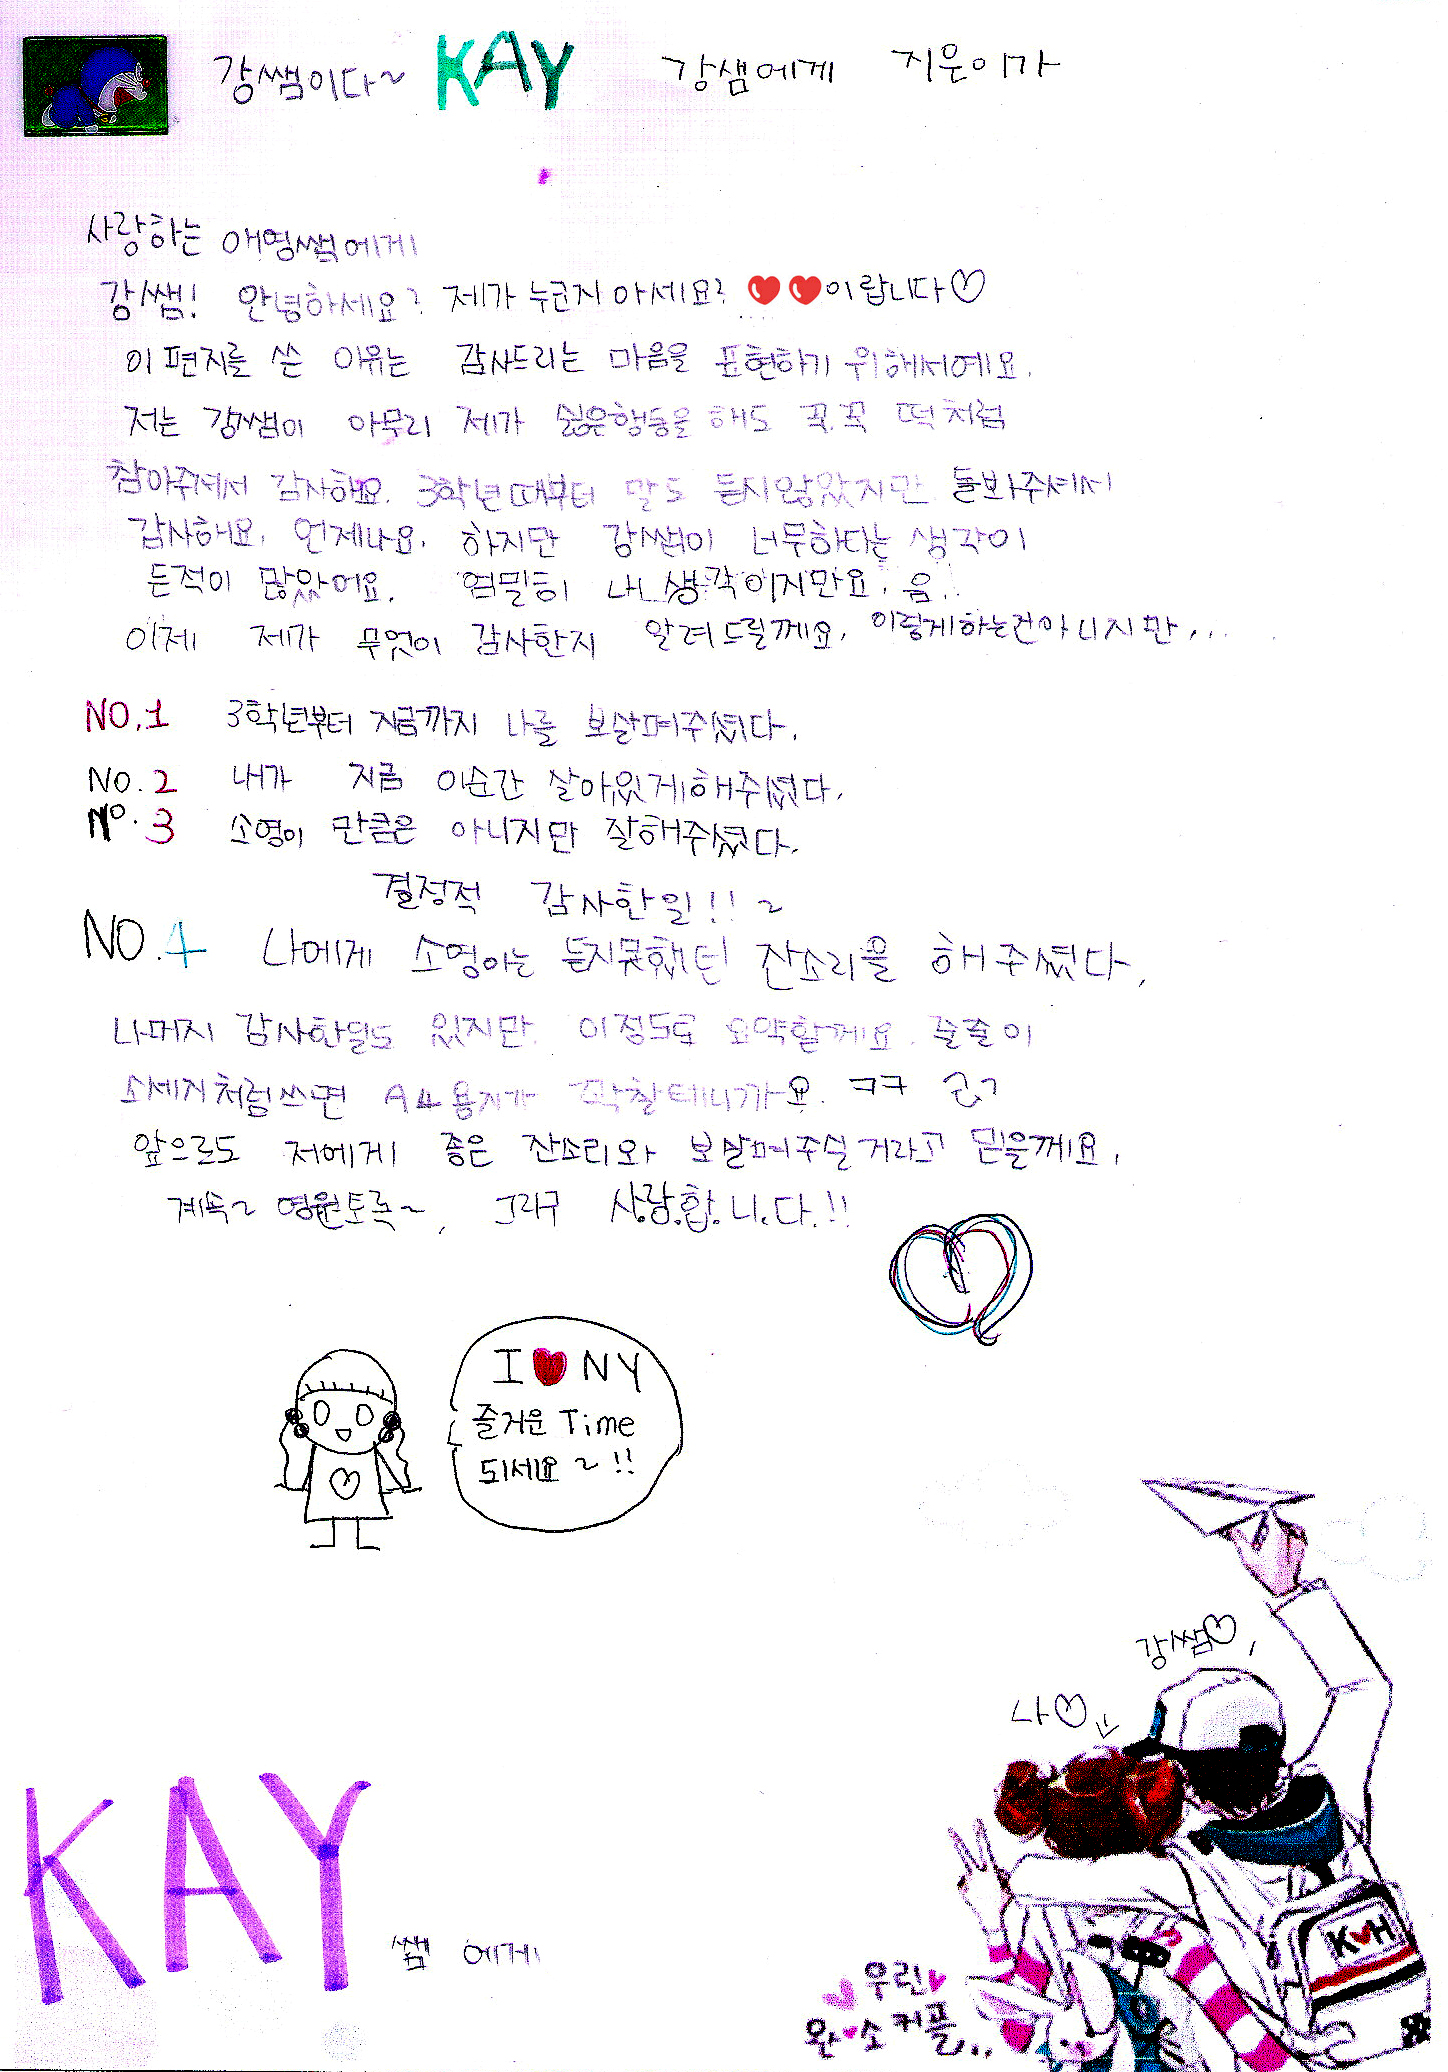 강쌤이다~ KAY 강샘에게 지은이가
사랑하는 애영쌤에게
강쌤! 안녕하세요? 제가 누군지 아세요? ❤❤이랍니다♡
이 편지를 쓴 이유는 감사드리는 마음을 표현하기 위해서예요.
저는 강쌤이 아무리 제가 싫은행동을 해도 꾹.꾹 떡처럼
참아주셔서 감사해요. 3학년때부터 말도 듣지않았지만 돌봐주셔서
감사해요. 언제나요. 하지만 강쌤이 너무하다는 생각이
든적이 많았어요. 엄밀히 내 생각이지만요. 음..
이제 제가 무엇이 감사한지 알려드릴께요. 이렇게하는건아니지만...
NO.1 3학년부터 지금까지 나를 보살펴주셨다.
NO.2 내가 지금 이순간 살아있게해주셨다.
NO.3 소영이 만큼은 아니지만 잘해주셨다.
결정적 감사한일!! ~
NO.4 나에게 소영이는 듣지못했던 잔소리을 해주셨다.
나머지 감사한일도 있지만 이정도로 요약할께요. 줄줄이
소세지처럼쓰면 A4용지가 꽉찰테니까요. ㅋㅋ
앞으로도 저에게 좋은 잔소리와 보살펴주실거라고 믿을께요.
계속~ 영원토록~, 그리구 사.랑.합.니.다.!!
I ❤ NY
즐거운 Time
되세요 ~ !!
강쌤♡,
나♡
K♥H
KAY 쌤 에게
우린
완♥소 커플...